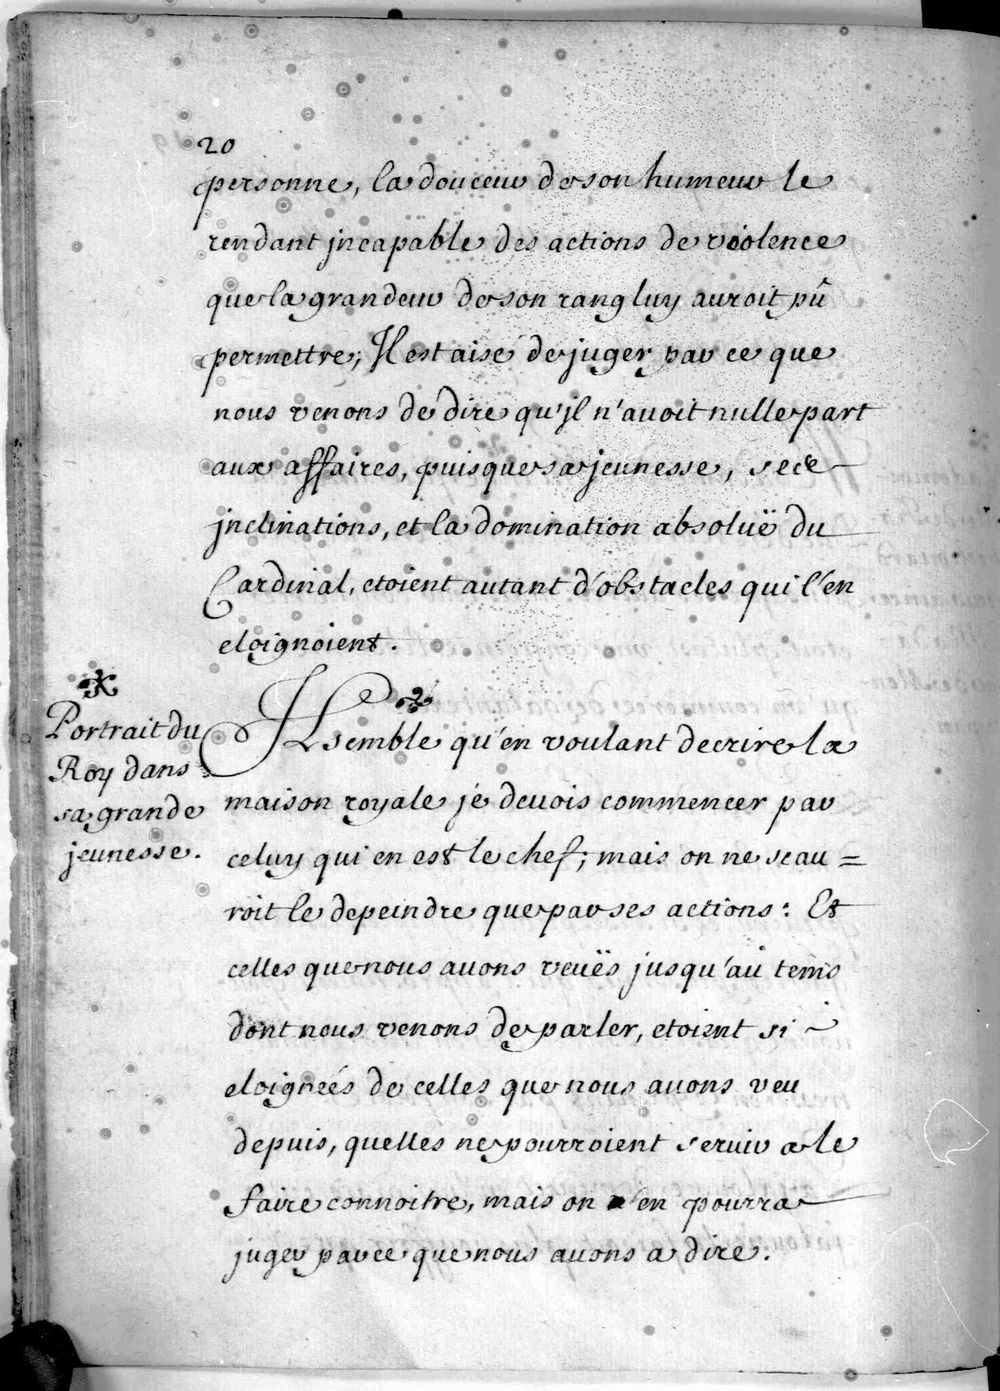 20
personne, la douceur de son humeur le
rendant jncapable des actions de violence
que la grandeur de son rang luy auroit pû
permettre; Jl est aisé de juger par ce que
nous venons de dire qu'jl n'auoit nulle part
aux affaires, puisque sa jeunesse, sece
jnclinations, et la domination absoluë du
Cardinal, etoient autant d'obstacles qui l'en
eloignoient.
Portrait du
Roy dans
sa grande
jeunesse.
Jl semble qu'en voulant decrire la
maison royale je deuois commencer par
celuy qui en est le chef; mais on ne scau =
roit le depeindre que par ses actions: Et
celles que nous auons veuës jusqu'aû tems
dont nous venons de parler, etoient si
eloignées de celles que nous auons veu
depuis, quelles ne pourroient seruir a le
faire connoitre, mais on en pourra
juger par ce que nous auons a dire.